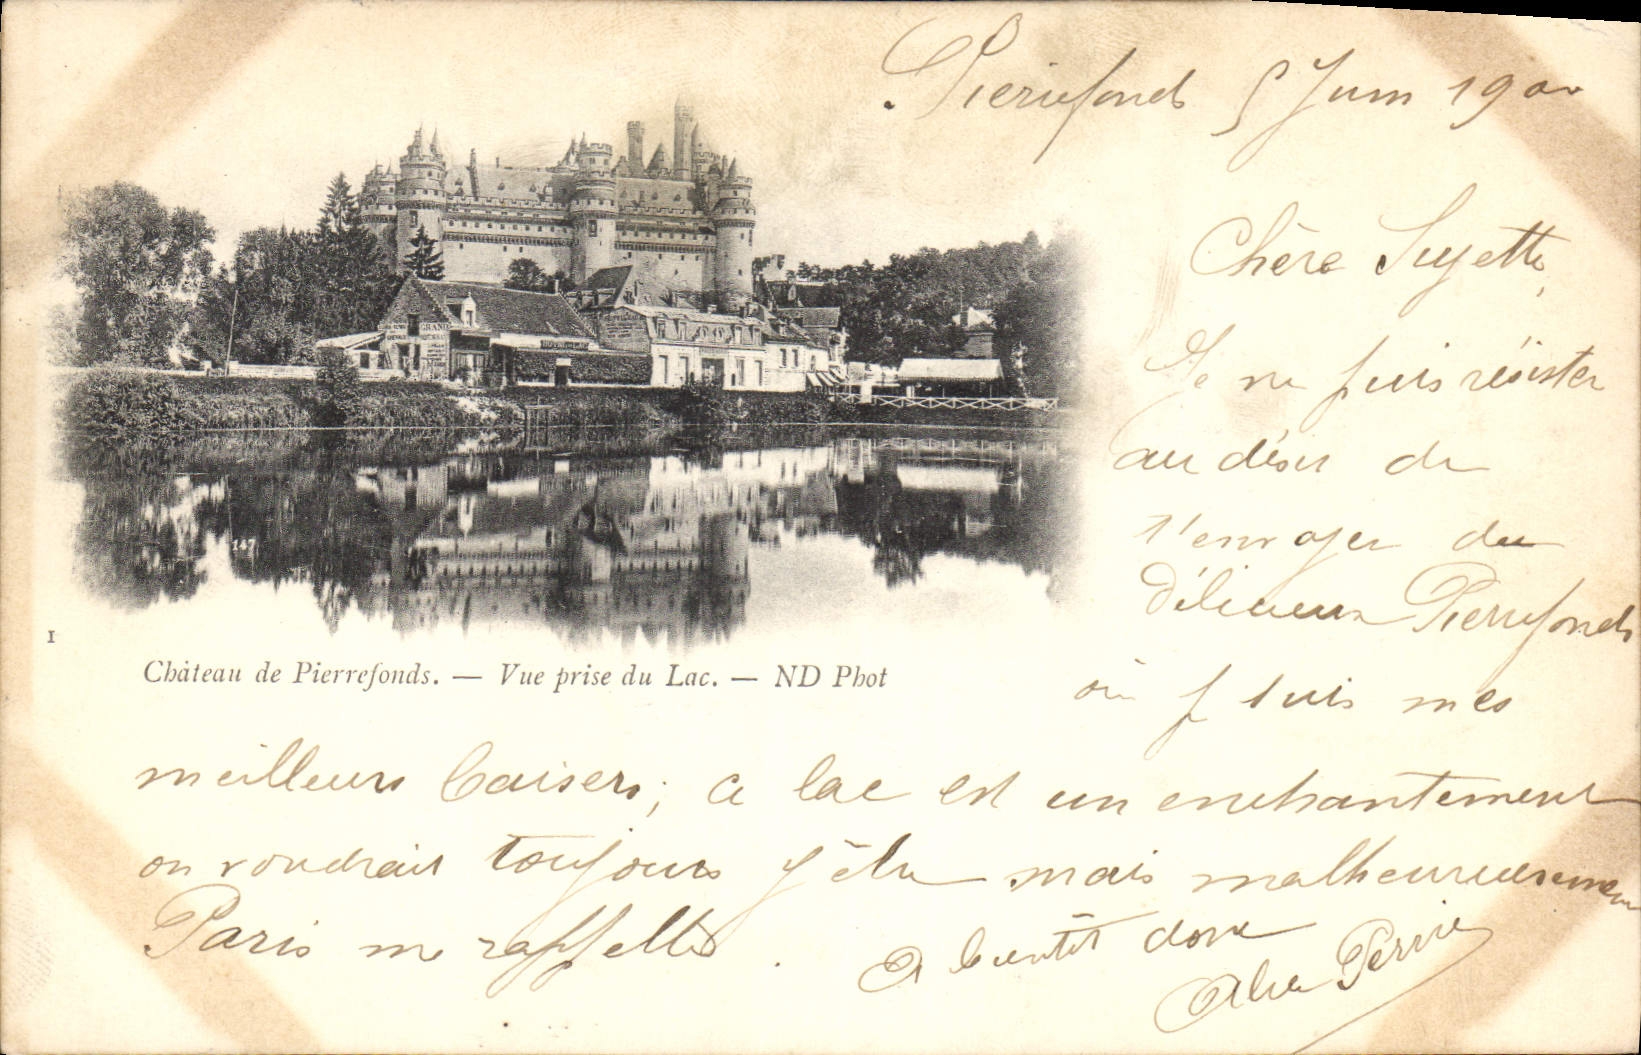 Pierrefonds 5 Juin 1900
Chère Suzette,
Je ne puis résister
au désir de
t'envoyer du
délicieux Pierrefonds
où je suis mes
meilleurs baisers; ce lac est un enchantement
on voudrait toujours y être mais malheureusement
Paris me rappelle.
A bientôt donc
GRAND
HOTEL DU LAC
147
1
Château de Pierrefonds. — Vue prise du Lac. — ND Phot